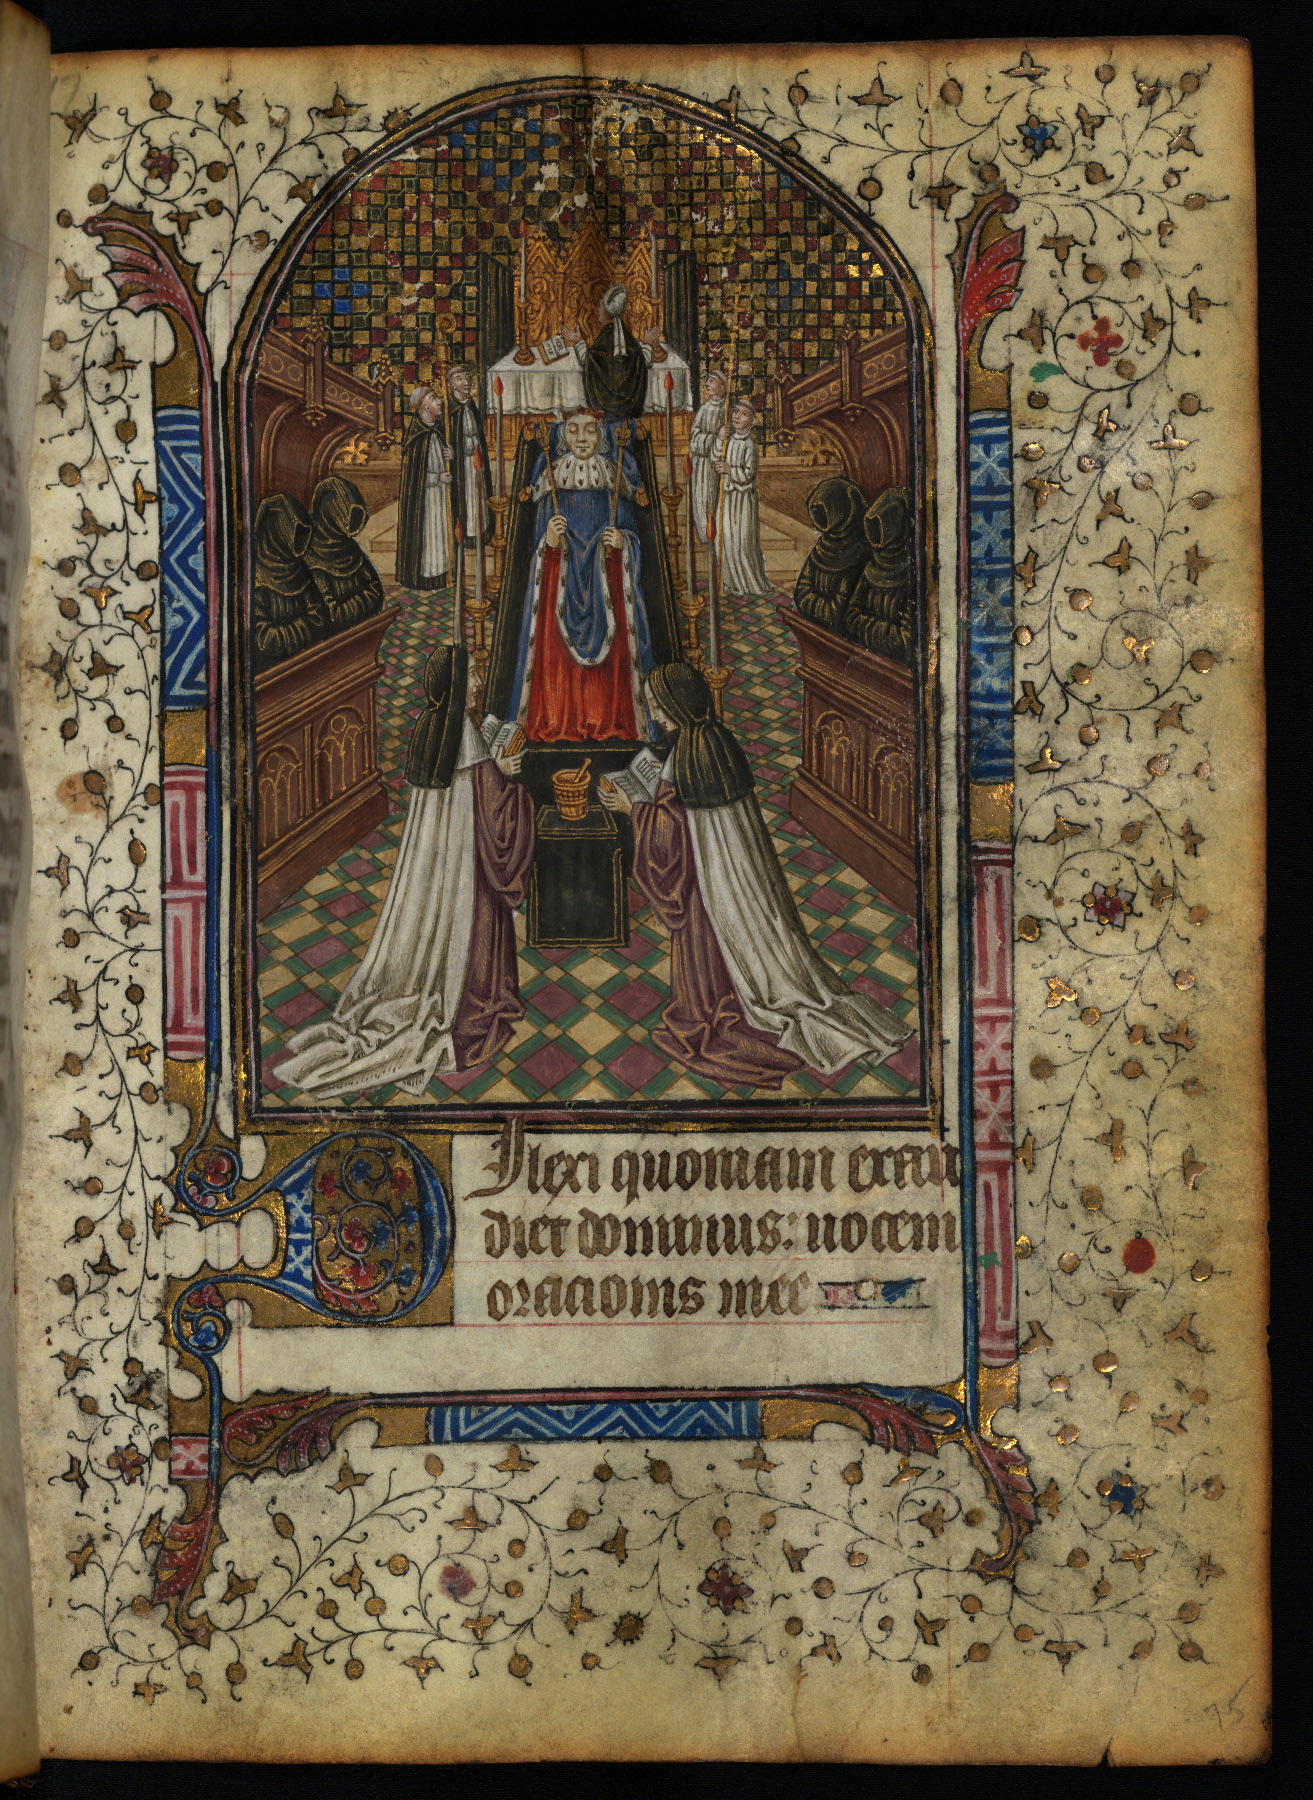 Dilexi quoniam exau
diet dominus: uocem
oracionis mee
75